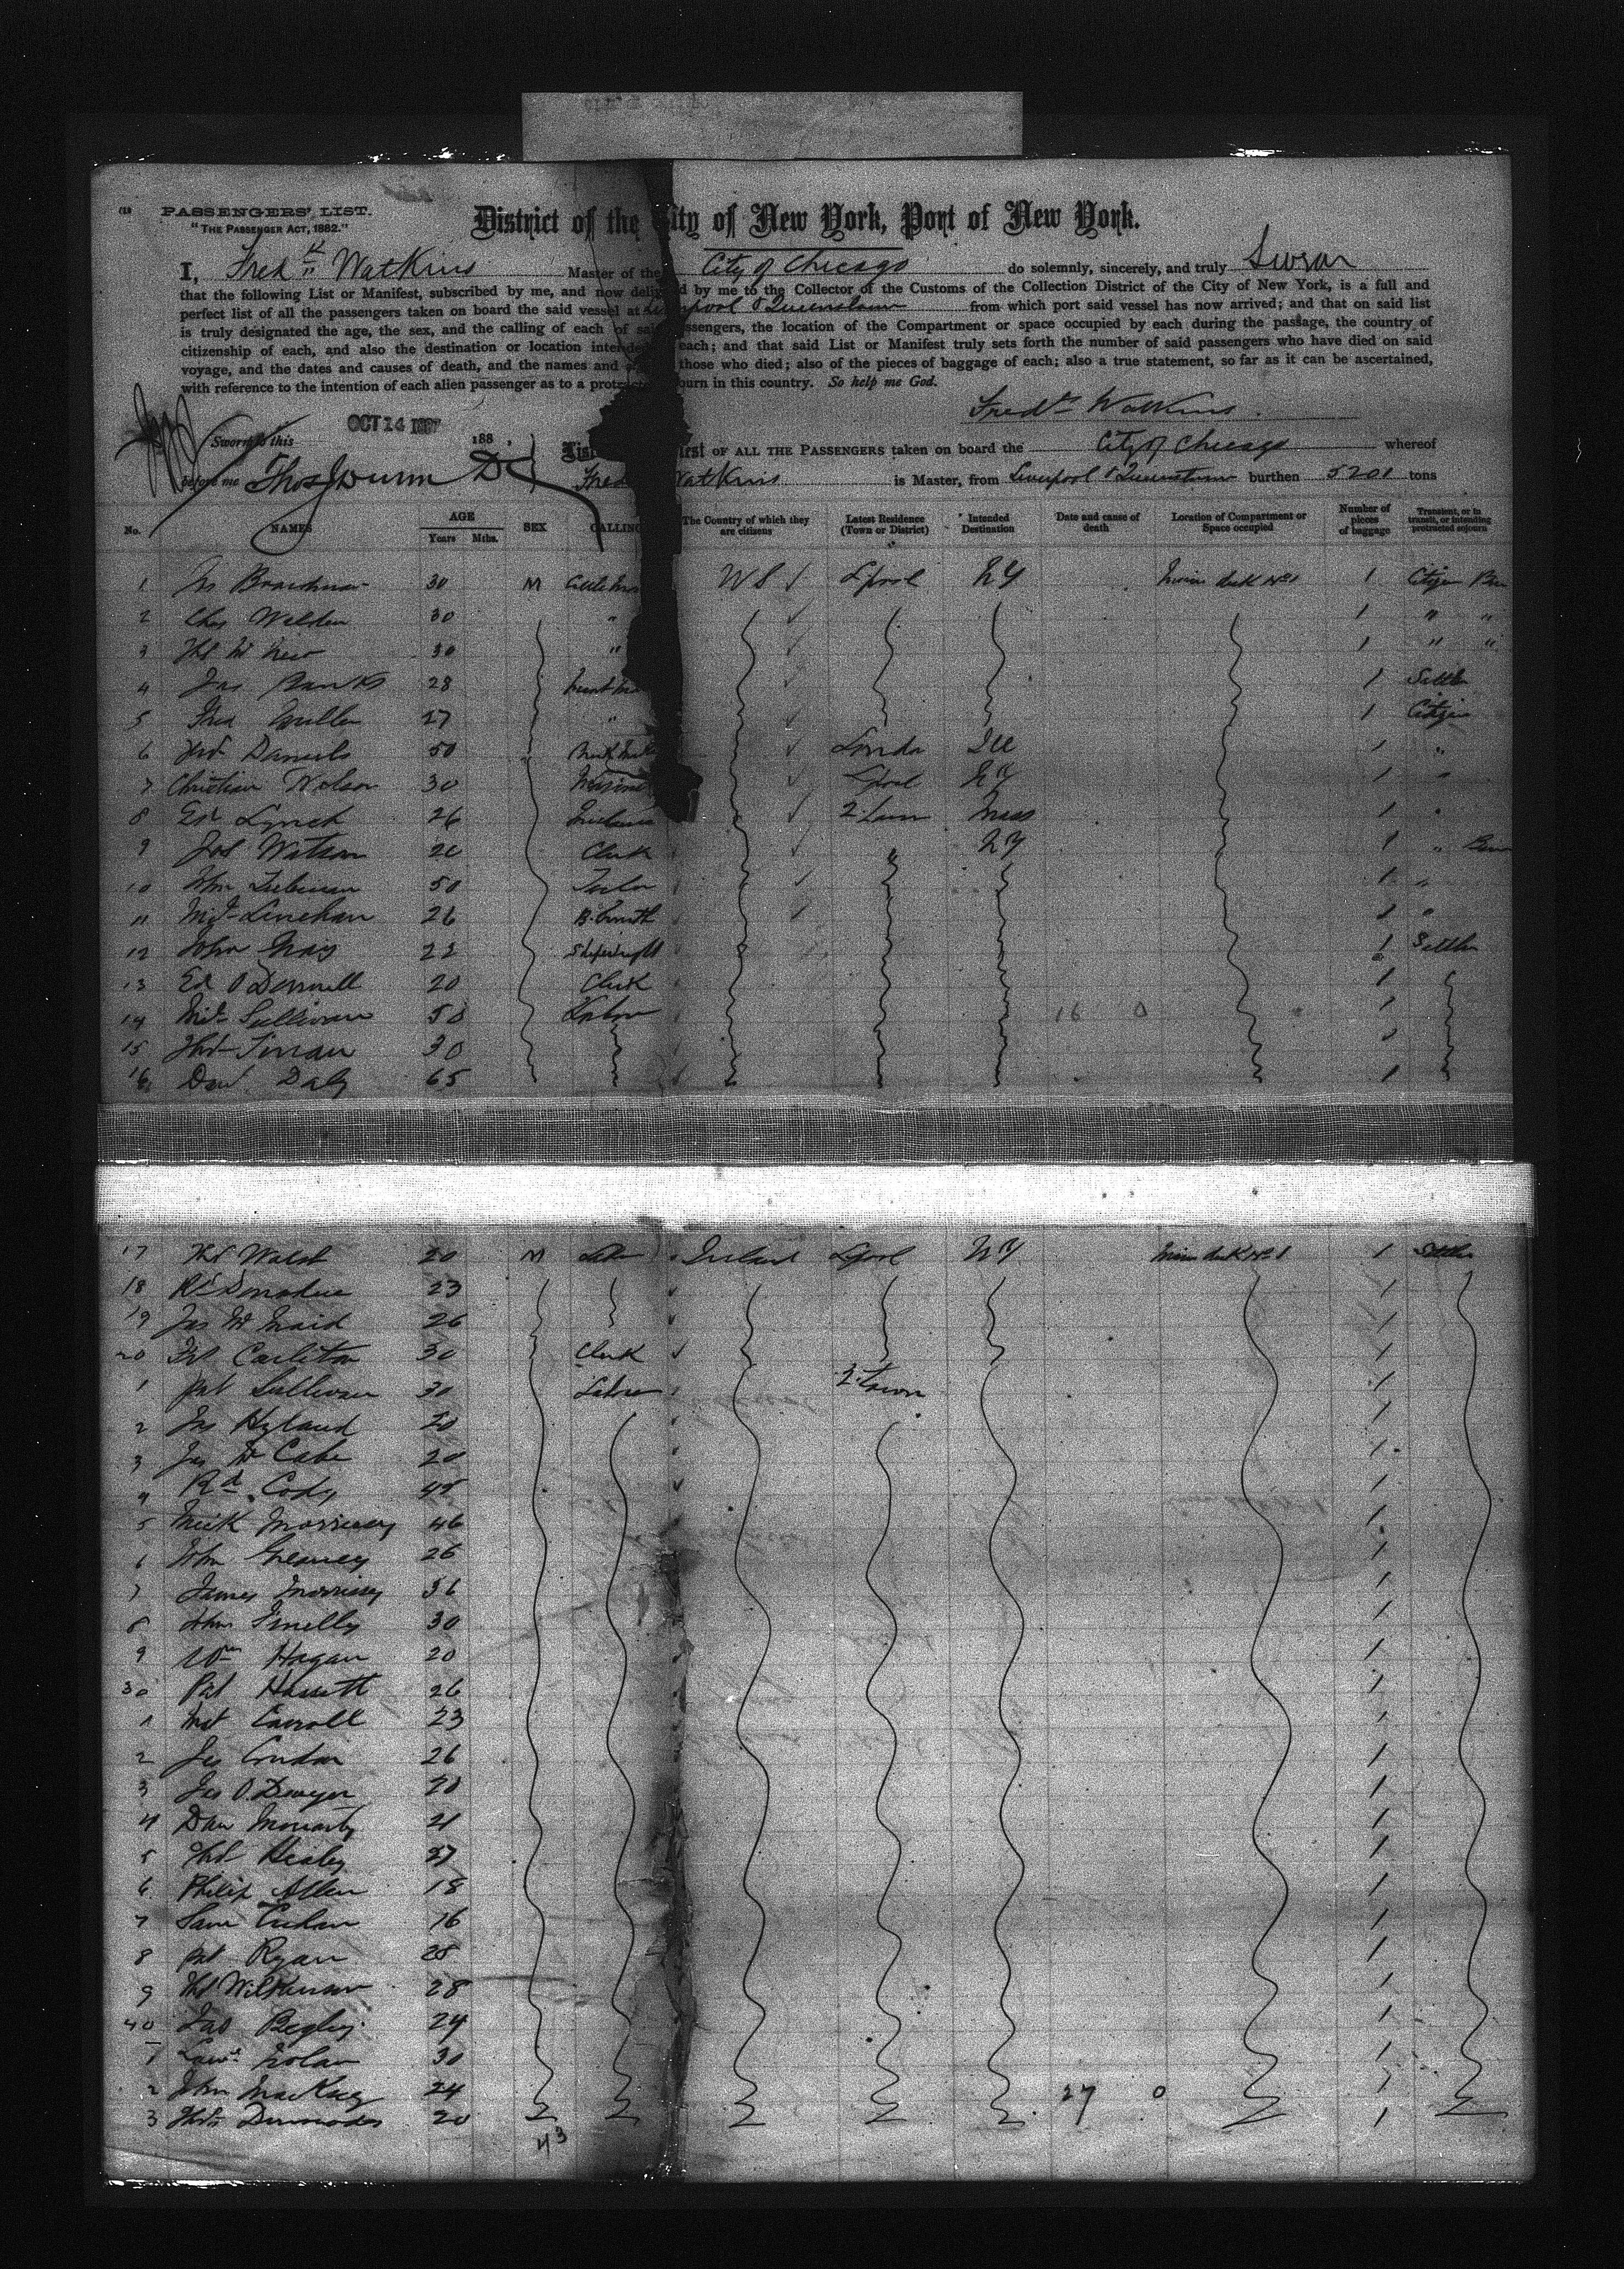 PASSENGERS' LIST.
"THE PASSENGER ACT, 1882."
District of the City of New York, Port of New York.
I, Fredk Watkins Master of the City of Chicago do solemnly, sincerely, and truly Swear
that the following List or Manifest, subscribed by me, and now delivered by me to the Collector of the Customs of the Collection District of the City of New York, is a full and
perfect list of all the passengers taken on board the said vessel at Liverpool & Queenstown from which port said vessel has now arrived; and that on said list
is truly designated the age, the sex, and the calling of each of said passengers, the location of the Compartment or space occupied by each during the passage, the country of
citizenship of each, and also the destination or location intended each; and that said List or Manifest truly sets forth the number of said passengers who have died on said
voyage, and the dates and causes of death, and the names and those who died; also of the pieces of baggage of each; also a true statement, so far as it can be ascertained,
with reference to the intention of each alien passenger as to a protracted sojourn in this country. So help me God.
Fredk Watkins.
Sworn to this OCT 14 1887 188 ,
before me Thos J Dunn
List est OF ALL THE PASSENGERS taken on board the City of Chicago whereof
Fred Watkins is Master, from Liverpool & Queenstown burthen 5201 tons
No. NAMES AGE Years Mths. SEX CALLING The Country of which they are citizens Latest Residence (Town or District) Intended Destination Date and cause of death Location of Compartment or Space occupied Number of pieces of baggage Transient, or in transit, or intending protracted sojourn
1 Boardman 30 M Cattle US L'pool NY 1 Citizen
2 Chas Walden 30 " 1 " "
3 30 " 1 " "
4 Jas Banks 28 1 Settler
5 Fred Miller 27 " 1 Citizen
6 Daniels 50 London Ill 1 "
7 Christian Nelson 30 L'pool NY 1 "
8 Ed Lynch 26 Q. Town Mass 1 "
9 Jos Watson 20 Clerk " NY 1 "
10 John 50 Tailor 1 "
11 Linehan 26 B. Smith 1 "
12 John Gray 22 Shipwright 1 Settler
13 Ed O'Donnell 20 Clerk 1
14 Sullivan 50 Labor 16 0 1
15 30 1
16 Danl Daly 65 1
17 Thos Walsh 20 M Labor Ireland L'pool NY 1 Settler
18 Rd Donohue 23 1
19 Jas 26 1
20 Carleton 30 Clerk 1
1 Pat Sullivan 30 Labor Q. Town 1
2 Jno Hyland 20 1
3 Jas McCabe 20 1
4 Rd Cody 45 1
5 Mick Morrissey 46 1
6 John Greaney 26 1
7 James Morrissey 36 1
8 John Finelly 30 1
9 Wm Hagan 20 1
30 Pat Hassett 26 1
1 Mat Carroll 23 1
2 Jas Condon 26 1
3 Jas O'Dwyer 20 1
4 Dan Moriarty 21 1
5 Thos Healey 27 1
6 Philip Allen 18 1
7 16 1
8 Pat Ryan 28 1
9 Thos Wilkinson 28 1
40 Jas Begley 24 1
1 Lawr Nolan 30 1
2 John Mackey 24 27 0 1
3 20 1
43